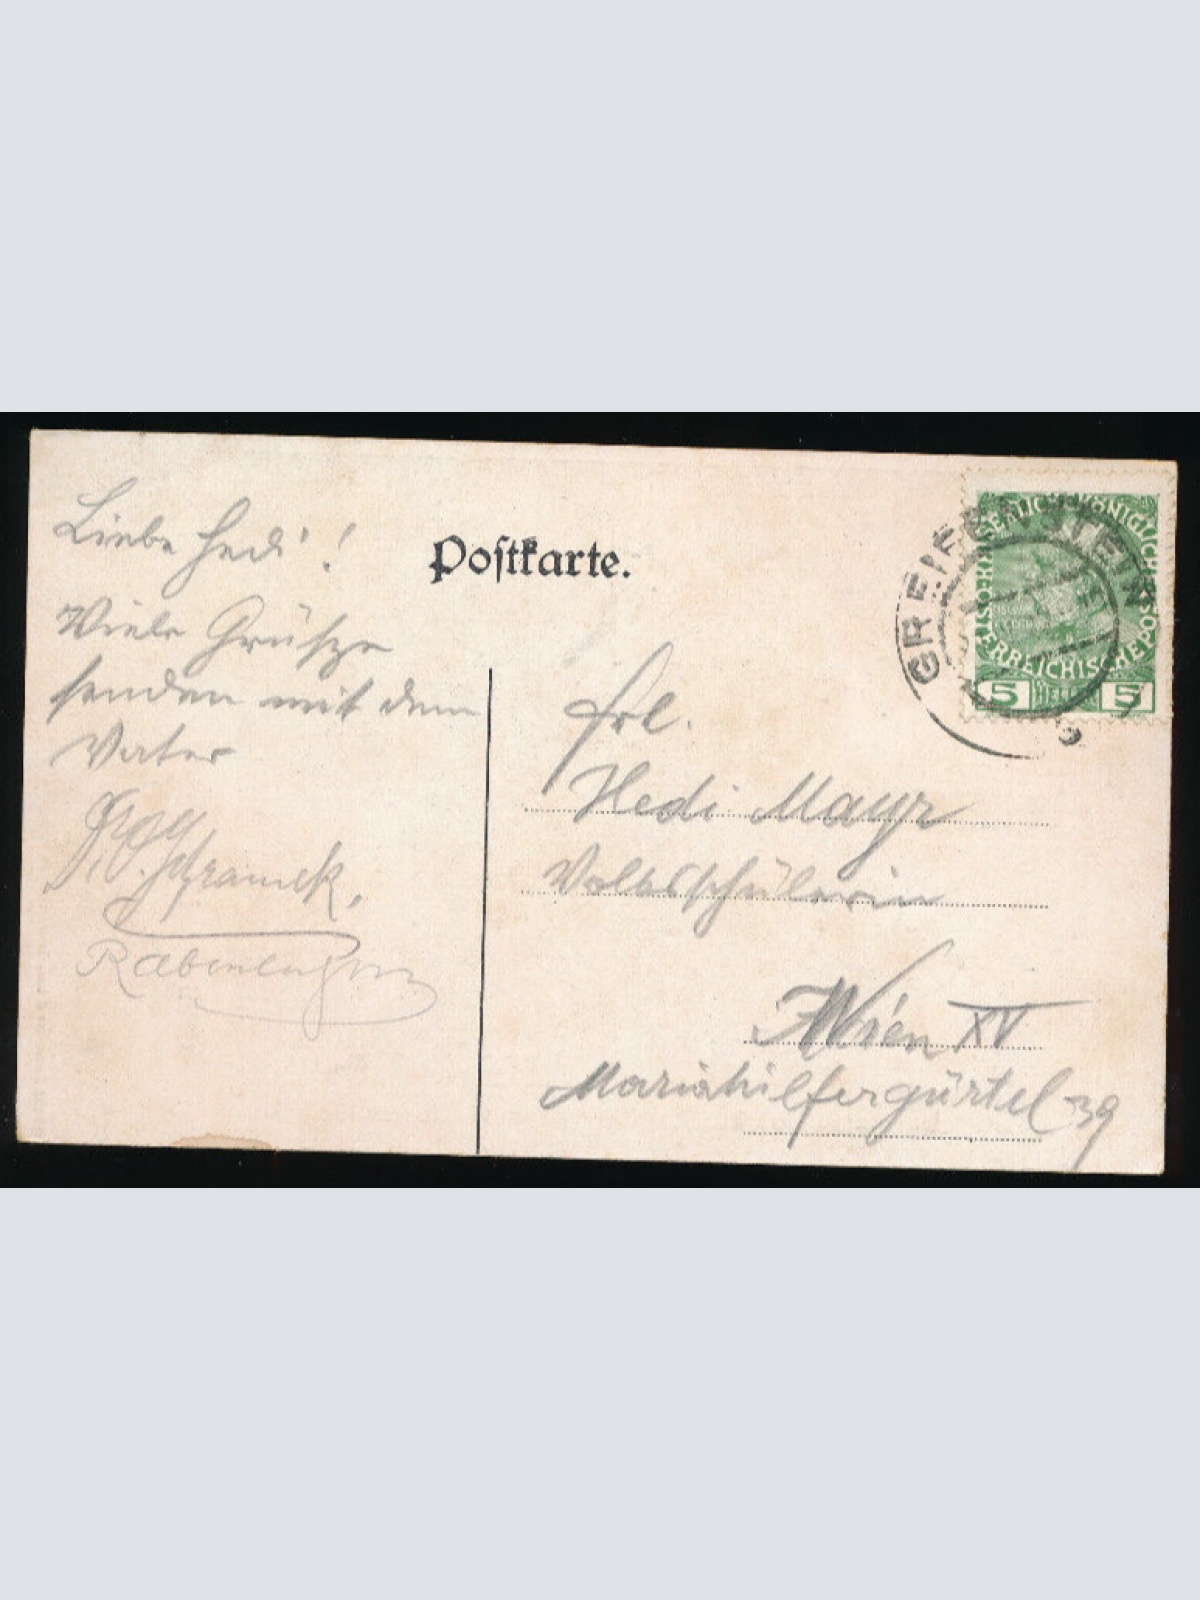 Liebe Hedi!
Viele Grüsze
senden mit dem
Vater
Schramek,
Postkarte.
Frl.
Hedi Mayr
Volksschülerin
Wien XV
Mariahilfergürtel 39
GREIFENSTEIN
KAISERLICH KÖNIGLICHE ÖSTERREICHISCHE POST
5 HELLER 5